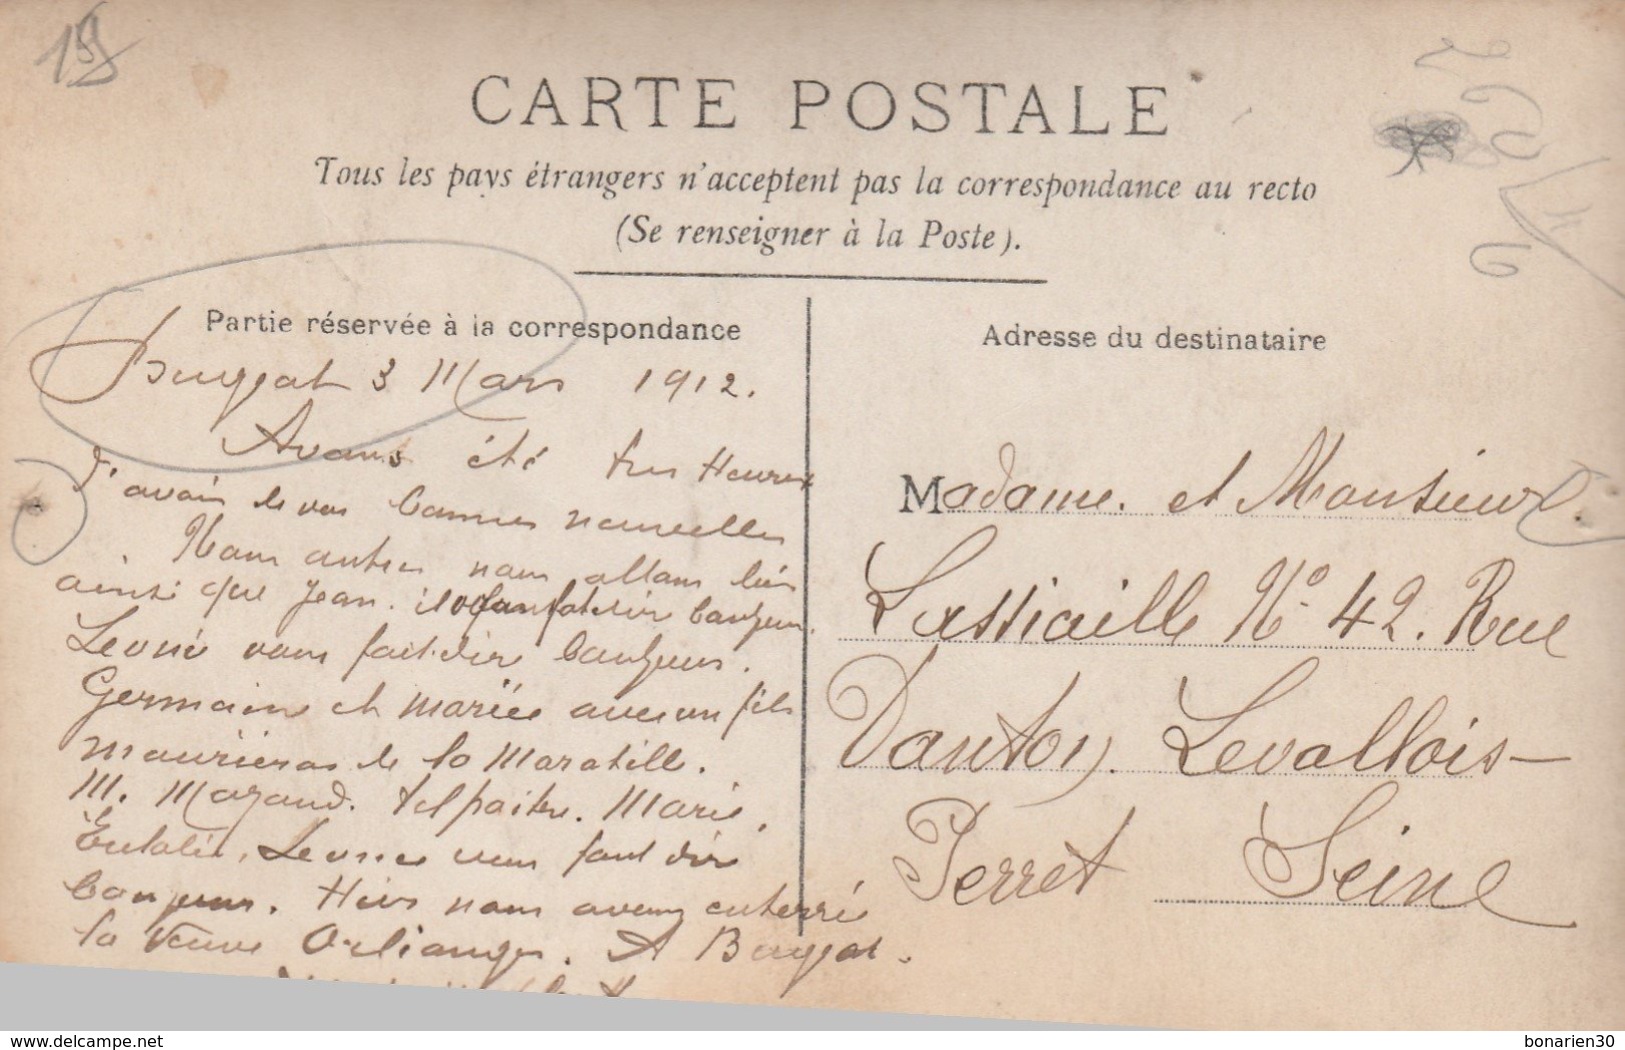 CARTE POSTALE
Tous les pays étrangers n'acceptent pas la correspondance au recto
(Se renseigner à la Poste).
Partie réservée à la correspondance
Bugeat 3 Mars 1912.
Avons été tres Heureux
d'avoir de vos bonnes nouvelles
Nous autres nous allons bien
ainsi que Jean. bonjour.
Leonie vous fait dir bonjours.
Germaine et mariée avec un fils
de la Maratille.
M. Mazaud. Marie,
Eulalie, Leonie vous font dir
bonjours. Hier nous avons enterré
la Veuve Orlianges. A Bugeat.
Adresse du destinataire
Madame. et Monsieur
Lassiaille No 42. Rue
Danton. Levallois-
Perret Seine
www.delcampe.net
bonarien30